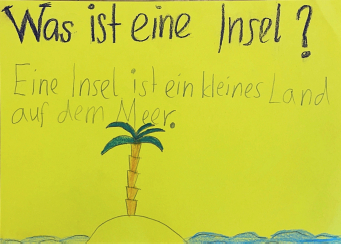 Was ist eine Insel?
Eine Insel ist ein kleines Land
auf dem Meer.